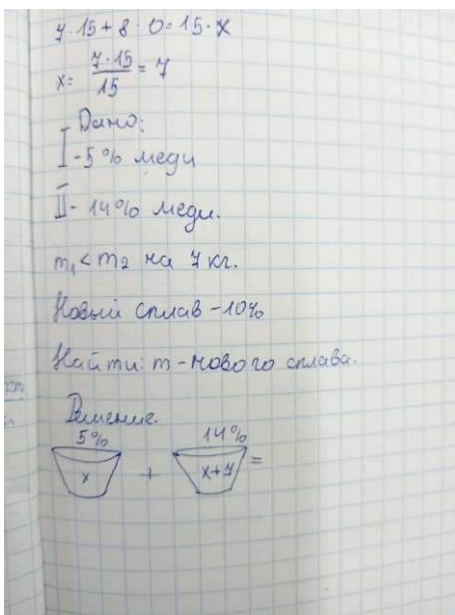 7·15+8·0=15·x
x= 7·15/15 = 7
Дано:
I-5% меди
II-14% меди.
m₁<m₂ на 7 кг.
Новый сплав-10%
Найти: m-нового сплава.
Решение.
5% 14%
x + x+7 =